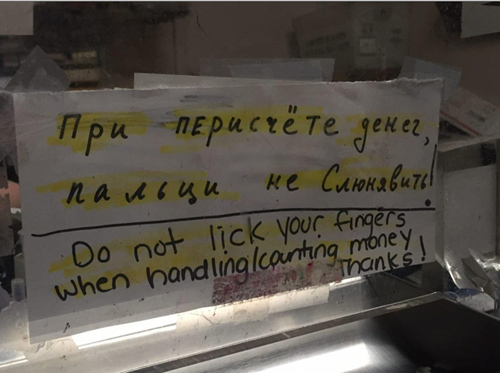 При перисчёте денег,
пальци не Слюнявить!
Do not lick your fingers
when handling/counting money
Thanks!